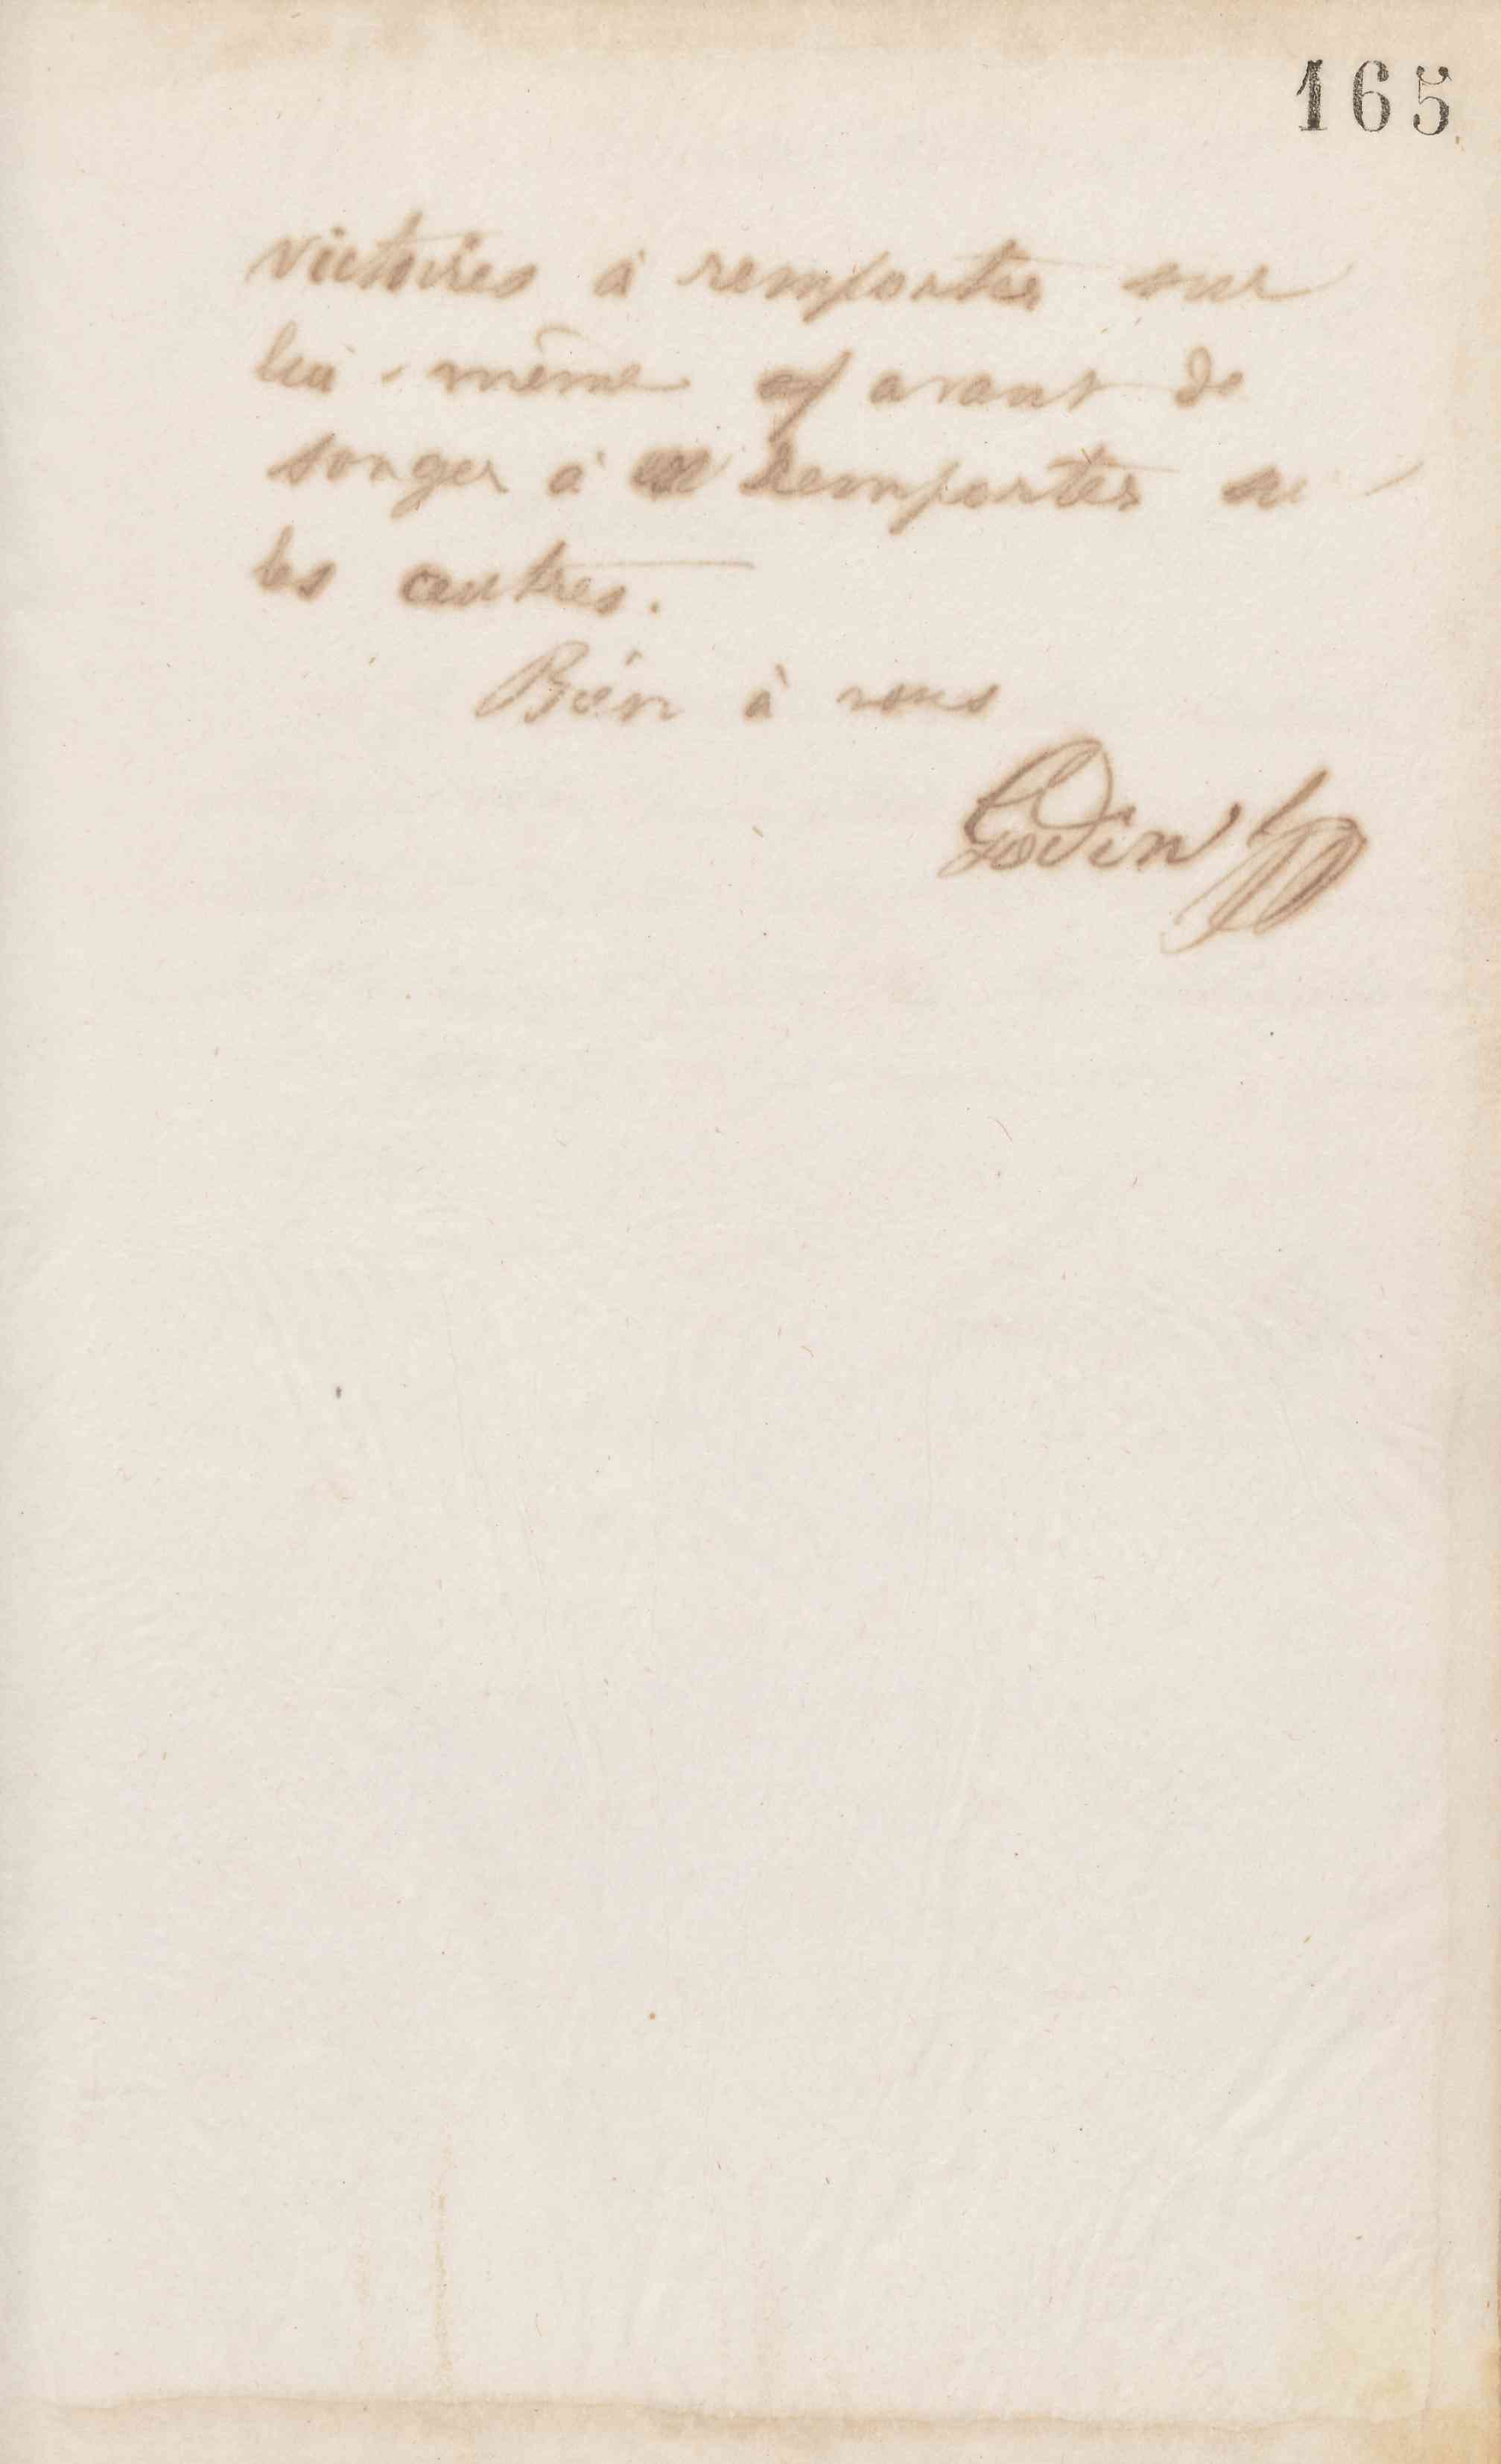 165
victoires à remporter sur
lui-même avant de
songer à en remporter su
les autres.
Bien à vous
Godin